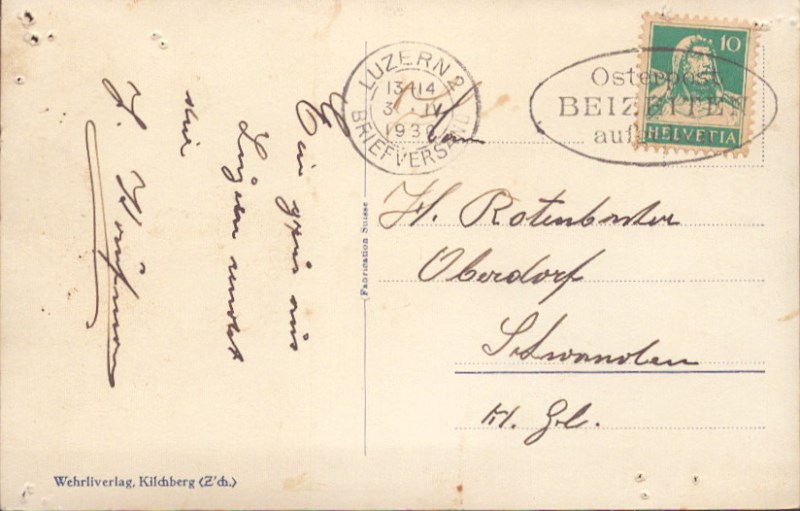 Ein gruss aus
Luzern sendet
hir
J.
LUZERN 2
13-14
3. IV
1930
BRIEFVERSAND
Osterpost
BEIZEITEN
auf
10
HELVETIA
Fabrication Suisse
H.
Oberdorf
Schwanden
Kt. Gl.
Wehrliverlag, Kilchberg (Z'ch.)